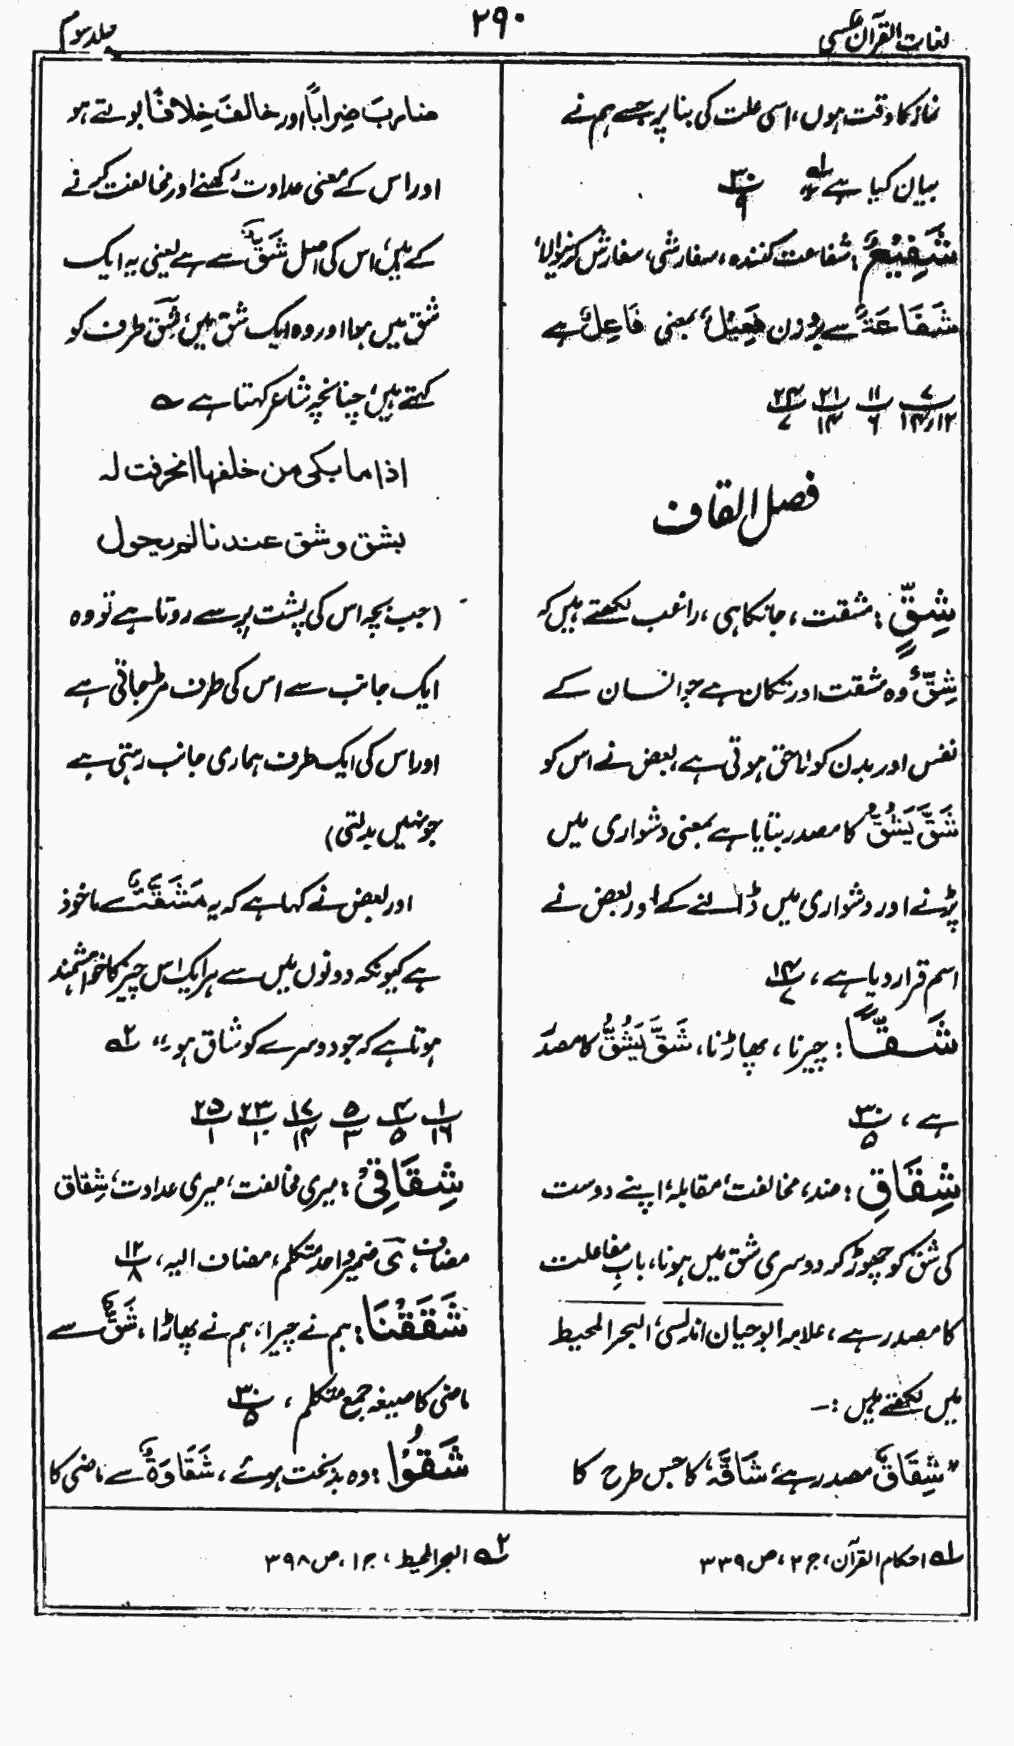 لغات القرآن عکسی
۲۹۰
جلد سوم
نماز کا وقت ہوں، اسی علت کی بنا پر جسے ہم نے
بیان کیا ہے ۱؎ ۳۰/۹
شَفِیْعٌ: شفاعت کنندہ، سفارشی، سفارش کرنیوالا،
شَفَاعَۃٌ سے بروزن فَعِیْلٌ بمعنی فَاعِلٌ ہے
۷/۱۲ار۱۴ ۱۱/۶ ۲۱/۱۴ ۲۴/۷
فصل القاف
شِقٍّ: مشقت، جانکاہی، راغب لکھتے ہیں کہ
شِقٌّ وہ مشقت اور تکان ہے جو انسان کے
نفس اور بدن کو لاحق ہوتی ہے، بعض نے اس کو
شَقَّ یَشُقُّ کا مصدر بتایا ہے بمعنی دشواری میں
پڑنے اور دشواری میں ڈالنے کے اور بعض نے
اسم قرار دیا ہے، ۱۴/۷
شَقًّا: چیرنا، پھاڑنا، شَقَّ یَشُقُّ کا مصدر
ہے، ۳۰/۵
شِقَاقٍ: ضد، مخالفت، مقابلہ، اپنے دوست
کی شق کو چھوڑ کر دوسری شق میں ہونا، بابِ مفاعلت
کا مصدر ہے، علامہ ابو حیان اندلسی، البحر المحیط
میں لکھتے ہیں :۔
”شِقَاقٌ مصدر ہے، شَاقَّہٗ، کا جس طرح کا
ضاربَ ضِراباً اور خالفَ خِلافًا بولتے ہو
اور اس کے معنی عداوت رکھنے اور مخالفت کرنے
کے ہیں، اس کی اصل شَقٌّ سے ہے یعنی یہ ایک
شق میں ہوا اور وہ ایک شق میں، شِق طرف کو
کہتے ہیں، چنانچہ شاعر کہتا ہے ؎
اذا ما بکی من خلفها انحرفت له
بشق وشق عندنا لم یحول
(جب بچہ اس کی پشت پر سے روتا ہے تو وہ
ایک جانب سے اس کی طرف مڑ جاتی ہے
اور اس کی ایک طرف ہماری جانب رہتی ہے
جو نہیں بدلتی)
اور بعض نے کہا ہے کہ یہ مَشَقَّۃٌ سے ماخوذ
ہے کیونکہ دونوں میں سے ہر ایک اس چیز کا خواہشمند
ہوتا ہے کہ جو دوسرے کو شاق ہو“، ۲؎
۱/۱۶ ۴/۵ ۵/۳ ۱۷/۱۴ ۲۳/۱۰ ۲۵/۱
شِقَاقِیْ: میری مخالفت، میری عداوت، شِقاق
مضاف، ی ضمیر واحد متکلم، مضاف الیہ، ۱۲/۸
شَقَقْنَا: ہم نے چیرا، ہم نے پھاڑا، شَقٌّ سے
ماضی کا صیغہ جمع متکلم، ۳۰/۵
شَقُوْا: وہ بدبخت ہوئے، شَقَاوَۃٌ سے ماضی کا
۱؎ احکام القرآن، ج ۲، ص ۳۳۹
۲؎ البحر المحیط، ج ۱، ص ۳۹۸